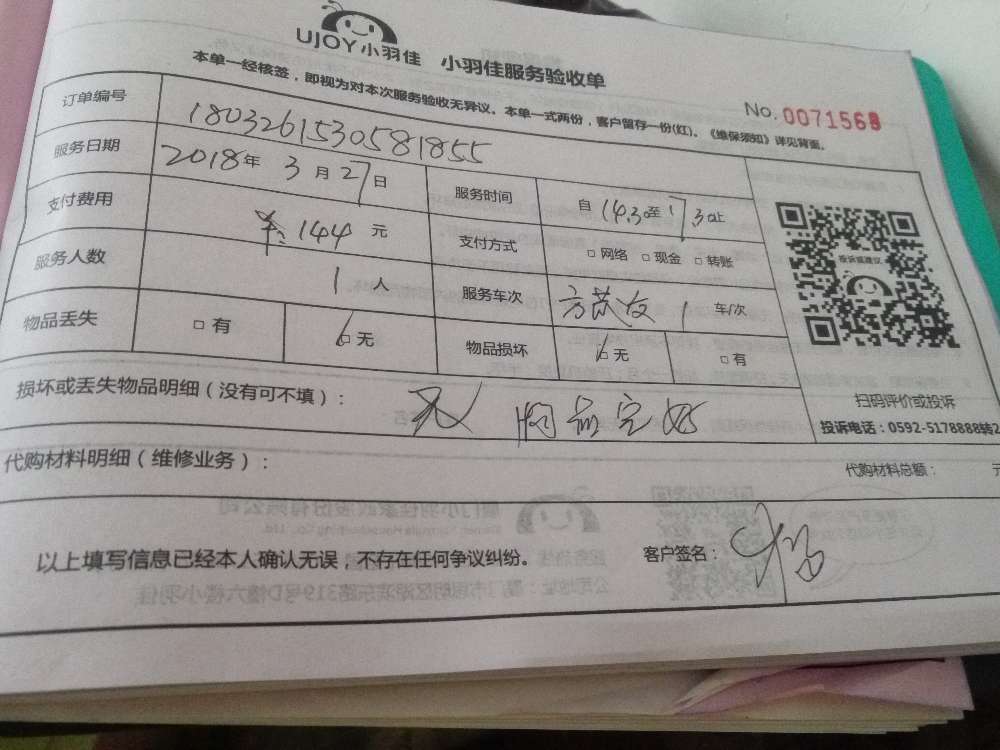 UJOY小羽佳 小羽佳服务验收单
本单一经核签，即视为对本次服务验收无异议。本单一式两份，客户留存一份(红)。《维保须知》详见背面。
No.
订单编号 1803261530581855
服务日期 2018年 3月27日 服务时间 自14.30至17.30止
支付费用 ¥:144元 支付方式 □网络 □现金 □转账
服务人数 1人 服务车次 1 车/次
物品丢失 □有 □无 物品损坏 □无 □有
投诉或建议
扫码评价或投诉
投诉电话：0592-5178888转2
损坏或丢失物品明细（没有可不填）： 无 物品完好
代购材料明细（维修业务）： 代购材料总额： 元
以上填写信息已经本人确认无误，不存在任何争议纠纷。 客户签名：